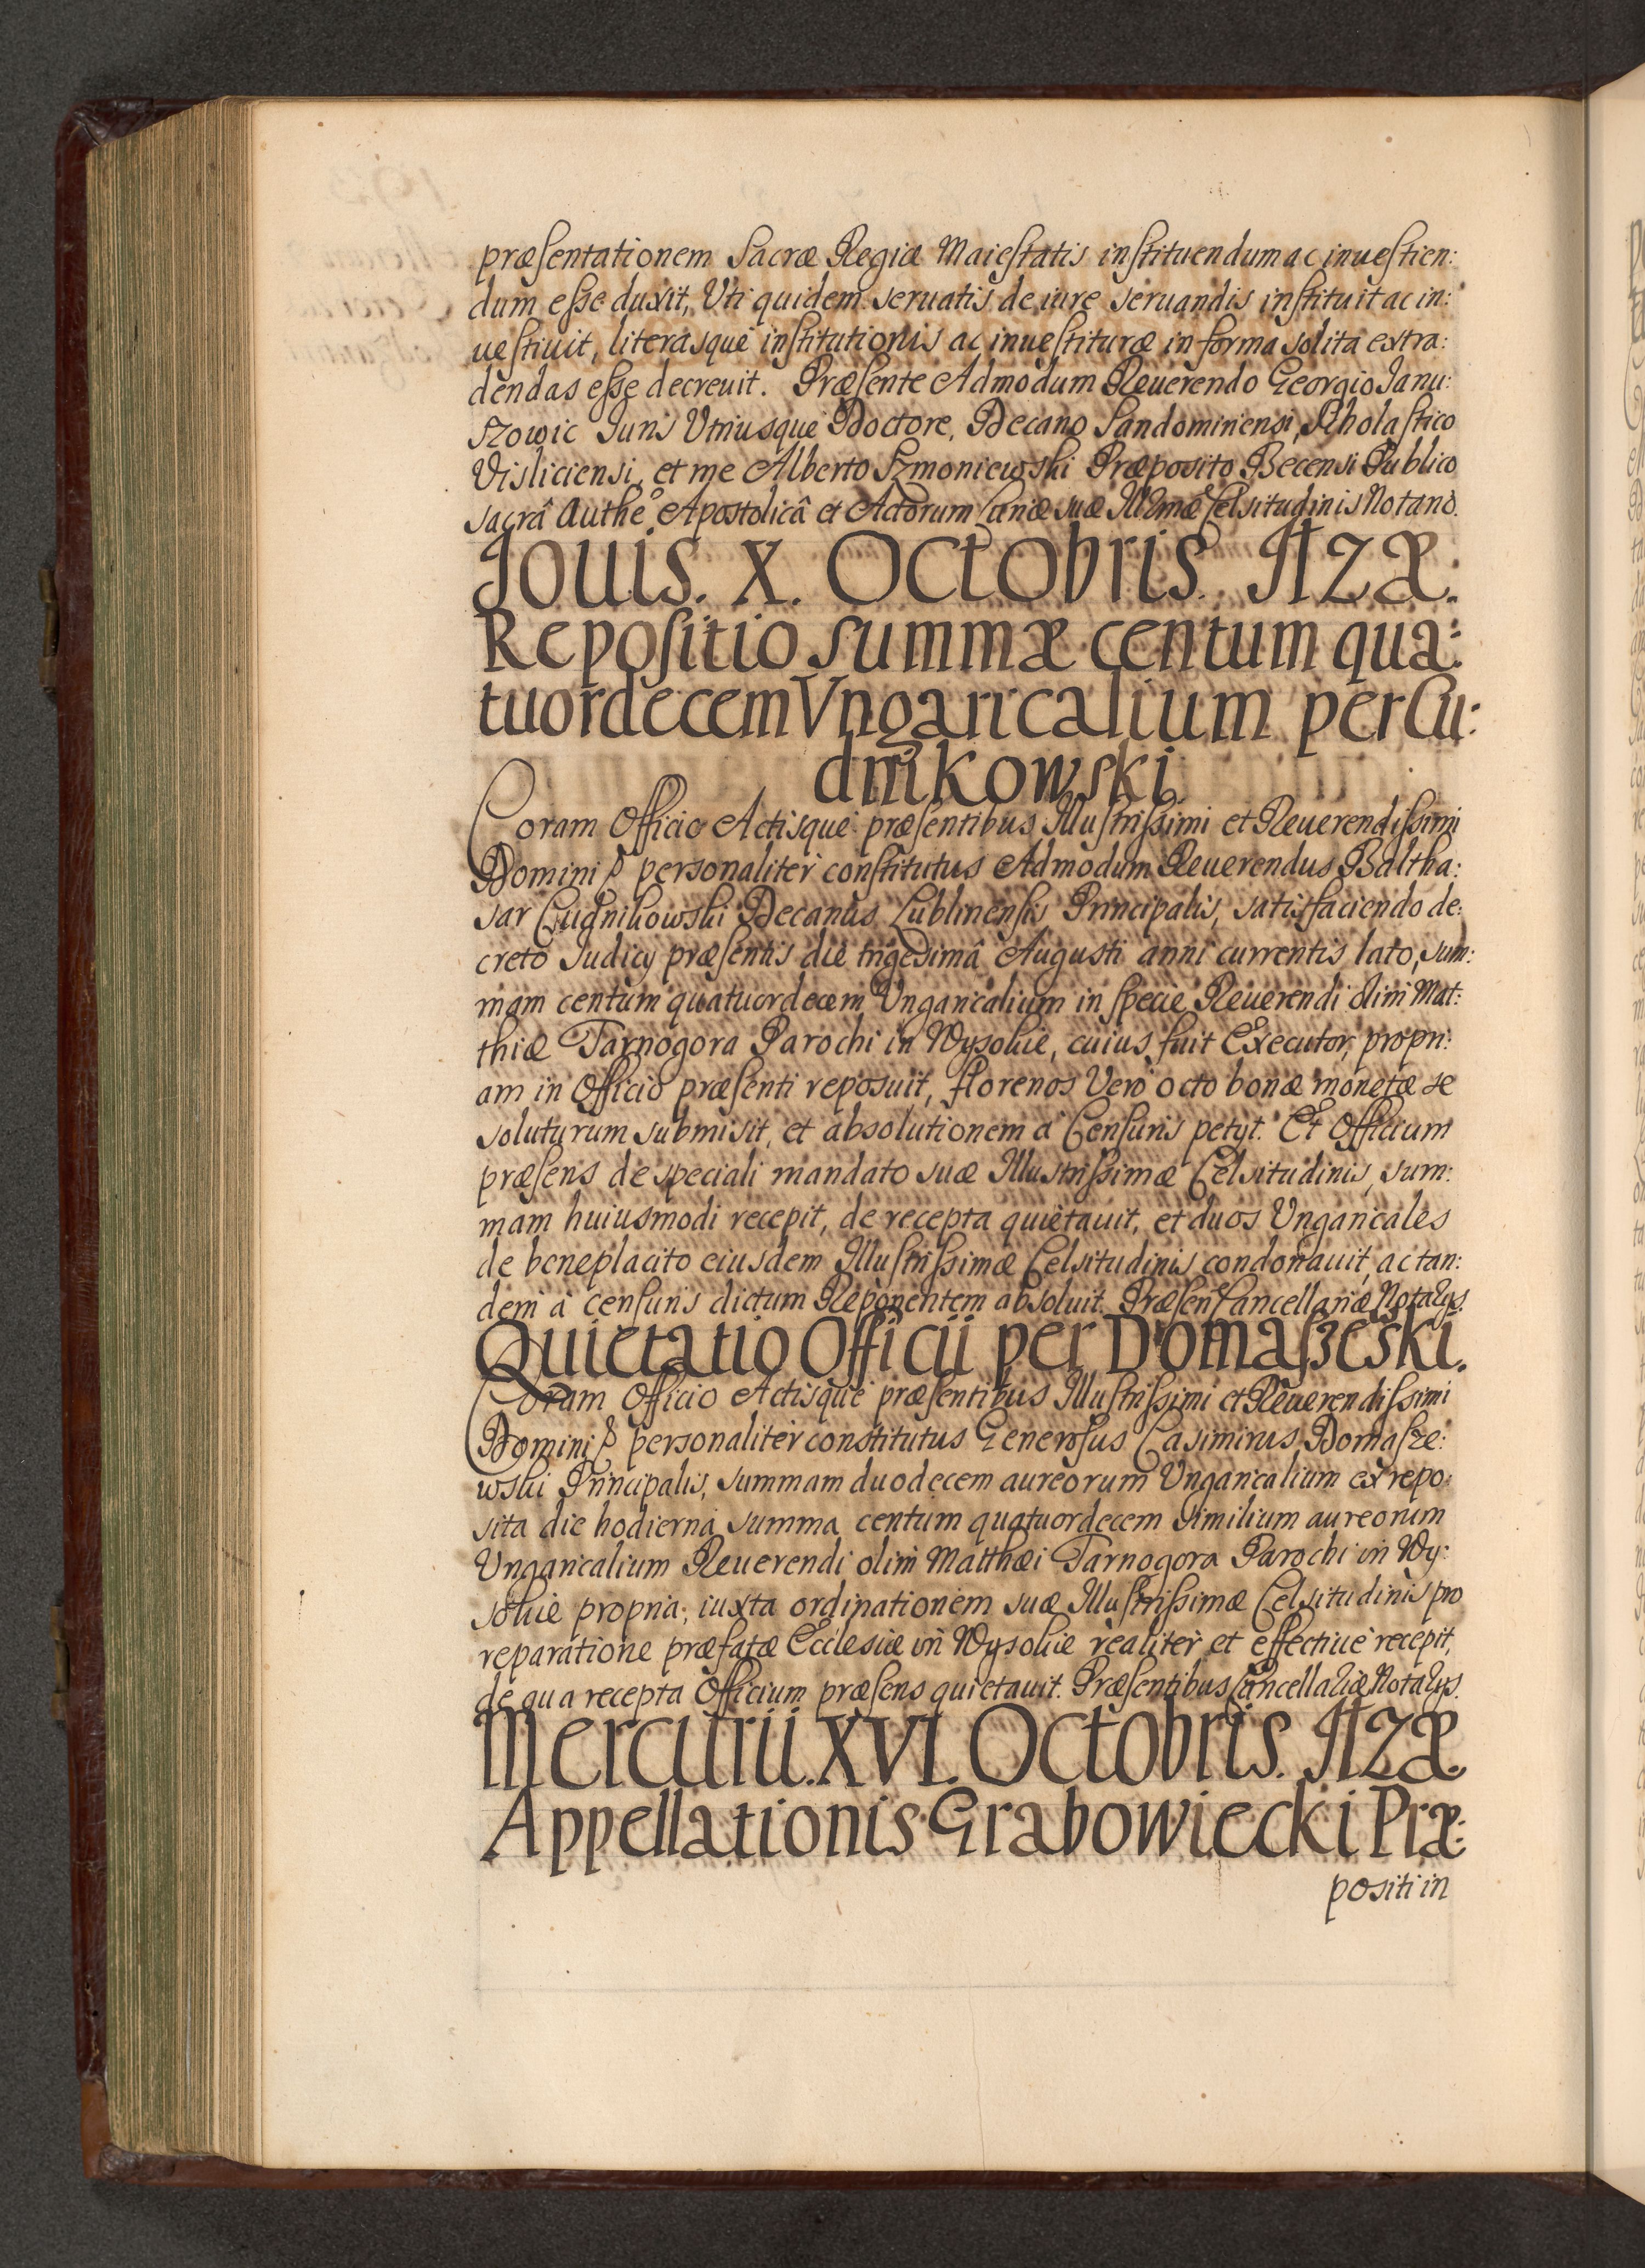 præsentationem Sacræ Regiæ Maiestatis instituendum ac inuestien:
dum esse duxit, Vti quidem seruatis de iure seruandis instituit ac in:
uestiuit, literasque institutionis ac inuestituræ in forma solita extra:
dendas esse decreuit. Præsente Admodum Reuerendo Georgio Janu:
szowic Juris Vtriusque Doctore, Decano Sandomiriensi, Scholastico
Visliciensi, et me Alberto Szmoniewski Præposito Becensi Publico
sacrâ Authe Apostolicâ et Actorum Curiæ suæ Illmæ Celsitudinis Notario.
Jouis. X. Octobris. Itzæ.
Repositio summæ centum qua:
tuordecem Vngaricalium per Cu:
dnikowski.
Coram Officio Actisque præsentibus Illustrissimi et Reuerendissimi
Domini personaliter constitutus Admodum Reuerendus Baltha:
sar Cudnikowski Decanus Lublinensis Principalis, satisfaciendo de:
creto Judicij præsentis die trigesimâ Augusti anni currentis lato, sum:
mam centum quatuordecem Vngaricalium in specie Reuerendi olim Mat:
thiæ Tarnogora Parochi in Wysokie, cuius fuit Executor, propri:
am in Officio præsenti reposuit, florenos Vero octo bonæ monetæ se
soluturum submisit, et absolutionem à Censuris petijt. Et Officium
præsens de speciali mandato suæ Illustrissimæ Celsitudinis, sum:
mam huiusmodi recepit, de recepta quietauit, et duos Vngaricales
de beneplacito eiusdem Illustrissimæ Celsitudinis condonauit, ac tan:
dem à censuris dictum Reponentem absoluit. Præsen Cancellariæ Notarijs.
Quietatio Officii per Domaszeski.
Coram Officio Actisque præsentibus Illustrissimi et Reuerendissimi
Domini personaliter constitutus Generosus Casimirus Domasze:
wski Principalis, summam duodecem aureorum Vngaricalium ex repo:
sita die hodierna summa centum quatuordecem similium aureorum
Vngaricalium Reuerendi olim Matthæi Tarnogora Parochi in Wy:
sokie propria, iuxta ordinationem suæ Illustrissimæ Celsitudinis pro
reparatione præfatæ Ecclesiæ in Wysokie realiter et effectiue recepit,
de qua recepta Officium præsens quietauit. Præsentibus Cancellariæ Notarijs.
Mercurii. XVI. Octobris. Itzæ.
Appellationis Grabowiecki Præ:
positi in